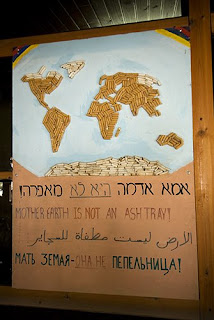 אמא אדמה היא לא מאפרה!
MOTHER EARTH IS NOT AN ASHTRAY!
الأرض ليست مطفأة للسجاير
МАТЬ ЗЕМАЯ-ОНА НЕ ПЕПЕЛЬНИЦА!